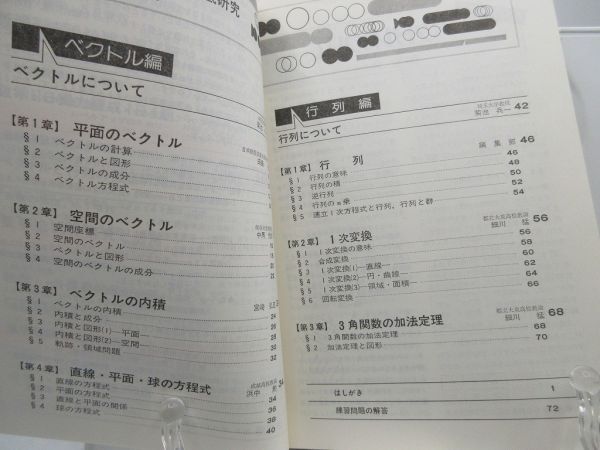 底研究
ベクトル編
ベクトルについて
【第1章】 平面のベクトル
§1 ベクトルの計算
§2 ベクトルと図形
§3 ベクトルの成分
§4 ベクトル方程式
【第2章】 空間のベクトル
§1 空間座標
§2 空間のベクトル
§3 ベクトルと図形
§4 空間のベクトルの成分
【第3章】 ベクトルの内積
§1 ベクトルの内積 24
§2 内積と成分 26
§3 内積と図形(1)―平面― 28
§4 内積と図形(2)―空間― 32
§5 軌跡・領域問題 32
【第4章】 直線・平面・球の方程式
§1 直線の方程式 34
§2 平面の方程式 36
§3 直線と平面の関係 38
§4 球の方程式 40
行列編
行列について 埼玉大学教授 菊池 兵一 42
【第1章】 行 列 編集部 46
§1 行列の意味 46
§2 行列の積 48
§3 逆行列 50
§4 行列のn乗 52
§5 連立1次方程式と行列,行列と群 54
【第2章】 1次変換 都立大泉高校教諭 細川 猛 56
§1 1次変換の意味 56
§2 合成変換 58
§3 1次変換(1)―直線― 60
§4 1次変換(2)―円・曲線― 62
§5 1次変換(3)―領域・面積― 64
§6 回転変換 66
【第3章】 3角関数の加法定理 都立大泉高校教諭 細川 猛 68
§1 3角関数の加法定理 68
§2 加法定理と図形 70
はしがき 1
練習問題の解答 72